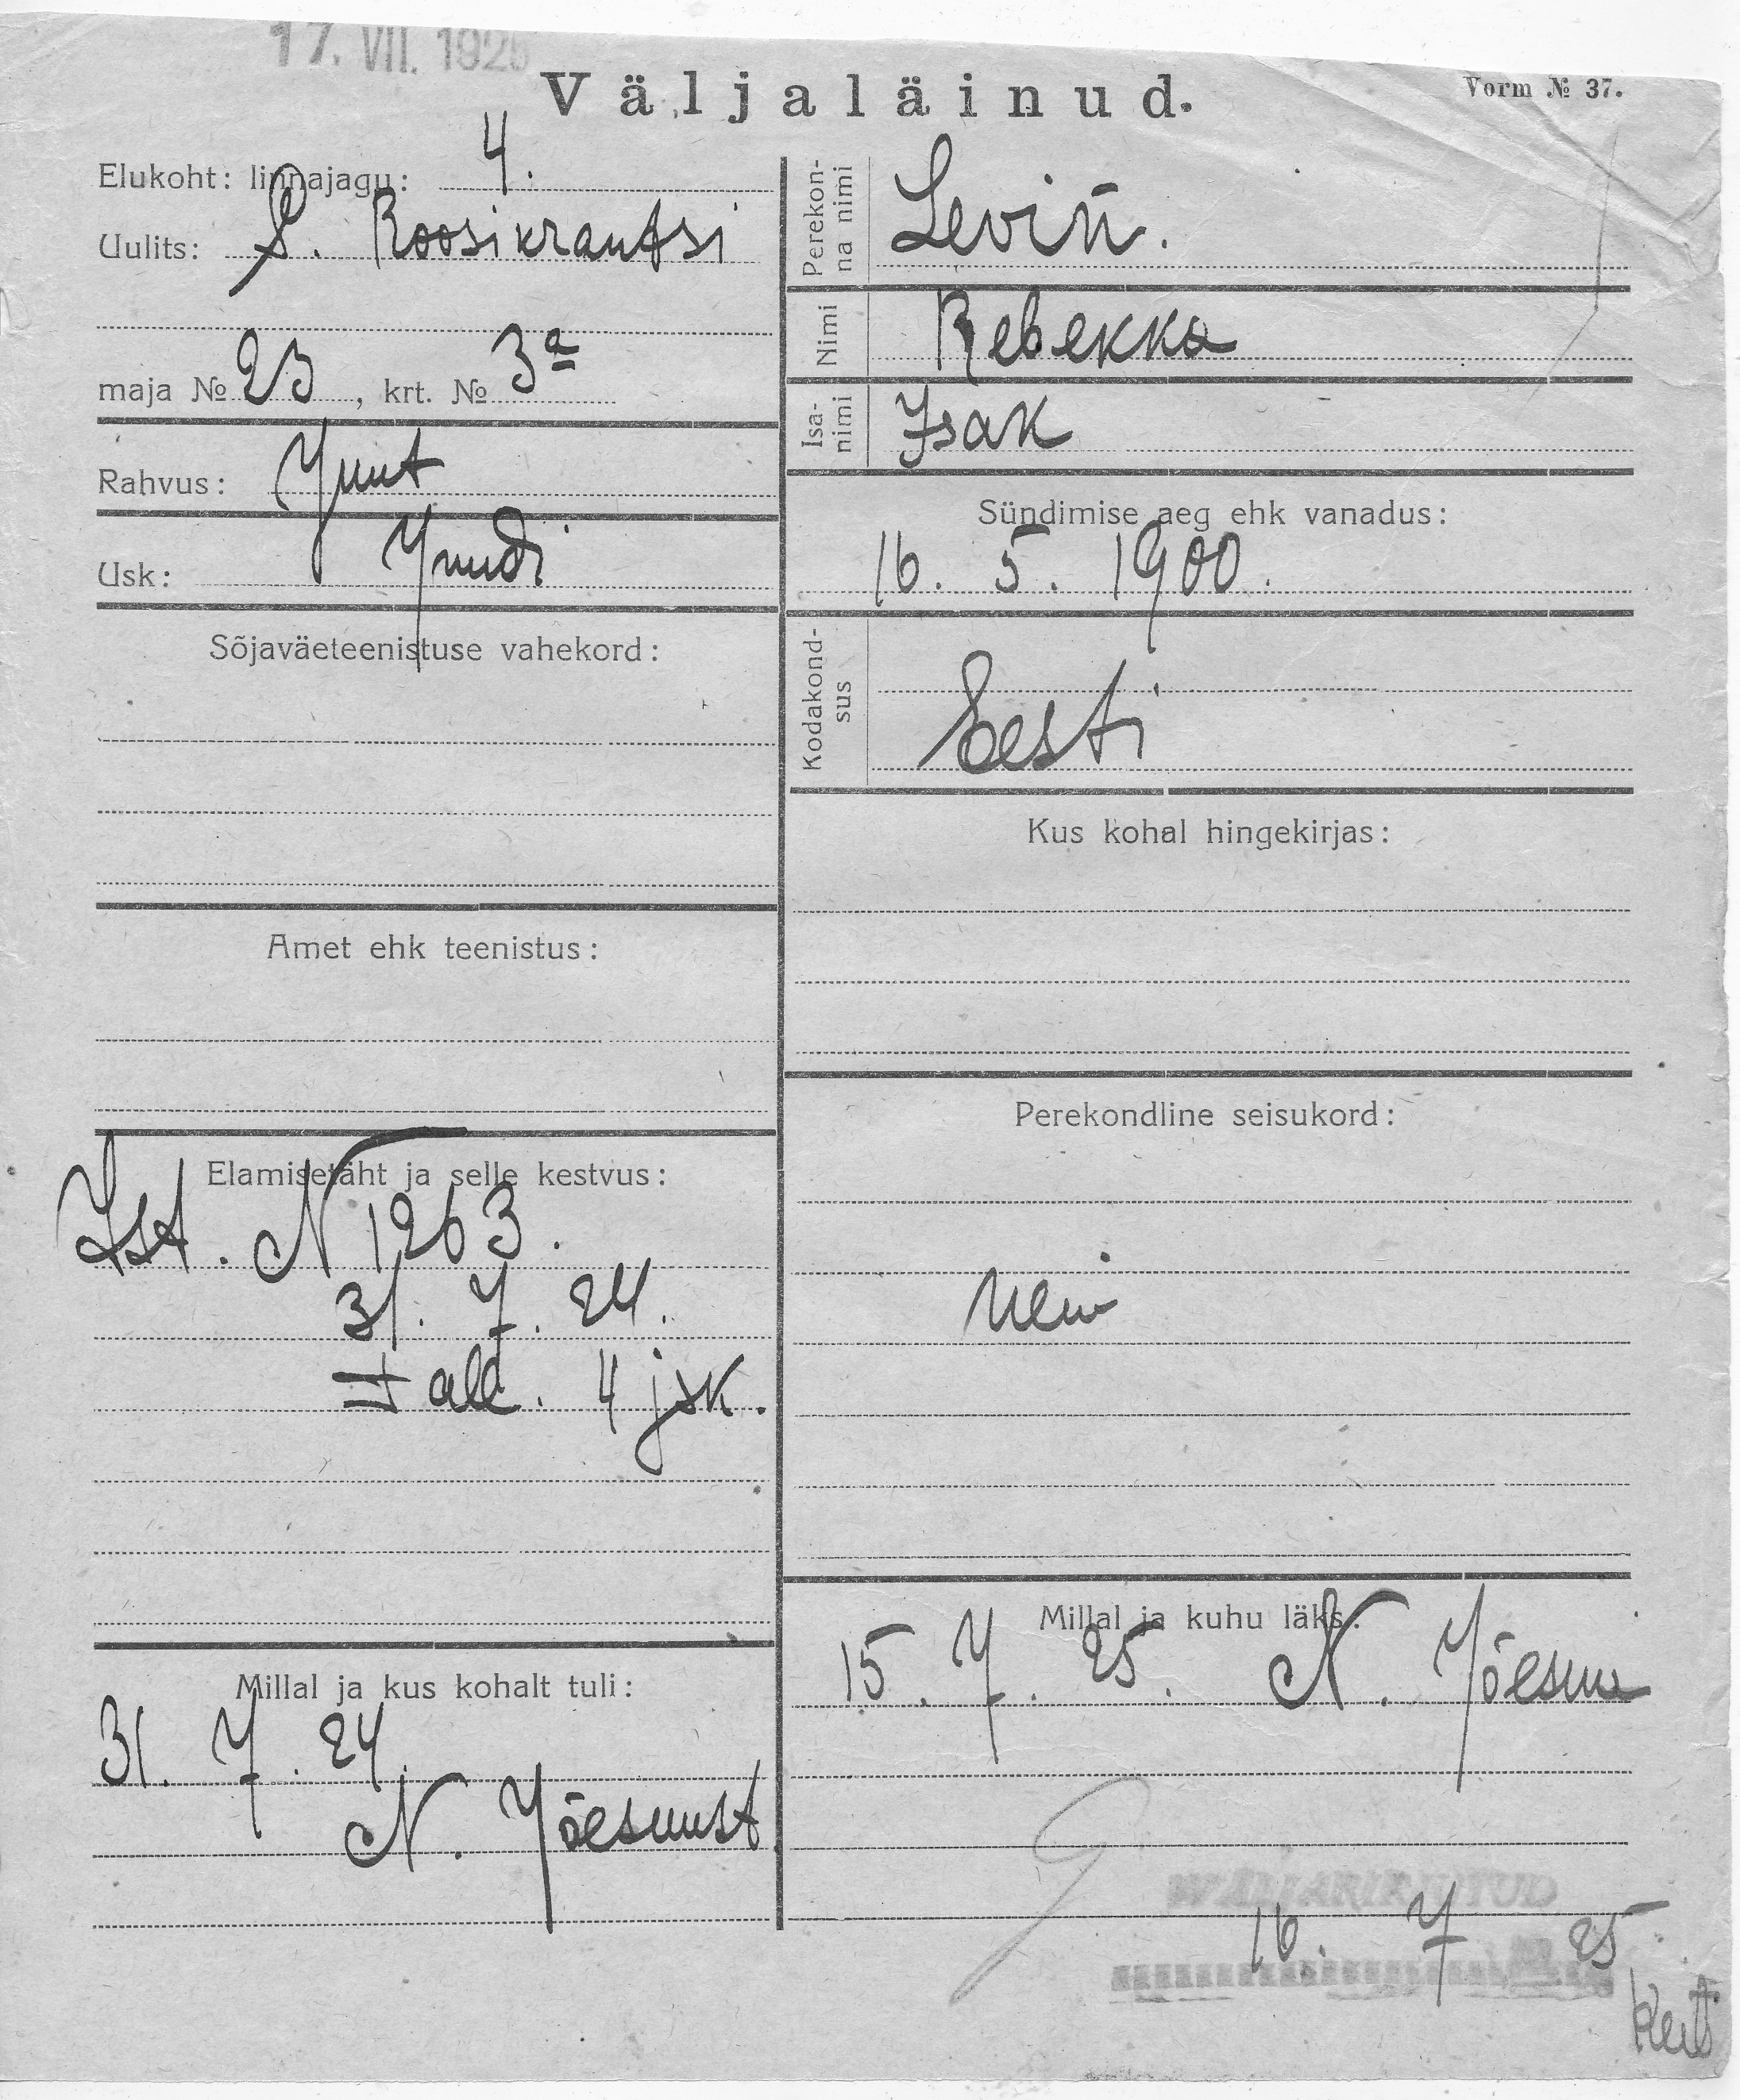 17. VII. 1925
Väljaläinud.
Vorm № 37.
Elukoht: linnajagu: 4.
Uulits: S. Roosikrantsi
maja № 23, krt. № 3a
Rahvus: Juut
Usk: Juudi
Sõjaväeteenistuse vahekord:
Amet ehk teenistus:
Elamisetäht ja selle kestvus:
Ist. N 1263.
31. 7. 24.
all. 4 jsk.
Millal ja kus kohalt tuli:
31. 7. 24.
N. Jõesuust.
Perekon-
na nimi
Levin.
Nimi
Rebekka
Isa-
nimi
Isak
Sündimise aeg ehk vanadus:
16. 5. 1900.
Kodakond-
sus
Eesti
Kus kohal hingekirjas:
Perekondline seisukord:
Millal ja kuhu läks:
15. 7. 25. N. Jõesuu
16. 7 25